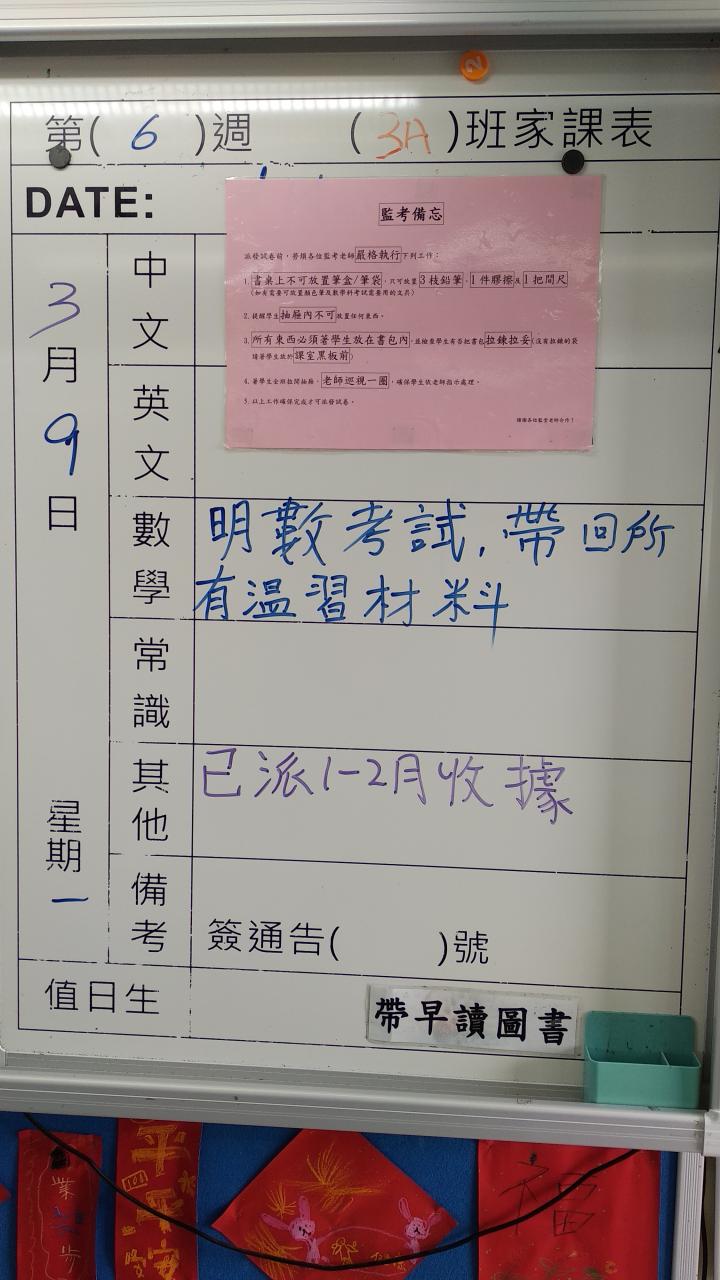 2
第( 6 )週 ( 3A )班家課表
DATE:
3月9日
星期一
監考備忘
派發試卷前，勞煩各位監考老師嚴格執行下列工作：
1. 書桌上不可放置筆盒/筆袋，只可放置3枝鉛筆，1件膠擦及1把間尺
(如有需要可放置顏色筆及數學科考試需要用的文具)
2. 提醒學生抽屜內不可放置任何東西。
3. 所有東西必須著學生放在書包內，並檢查學生有否把書包拉鍊拉妥(沒有拉鍊的袋
請著學生放於課室黑板前)
4. 著學生全班拉開抽屜，老師巡視一圈，確保學生依老師指示處理。
5. 以上工作確保完成才可派發試卷。
謝謝各位監堂老師合作！
中文
英文
數學
明數考試，帶回所
有温習材料
常識
其他
已派1-2月收據
備考
簽通告( )號
值日生
帶早讀圖書
業
步
平平安
福